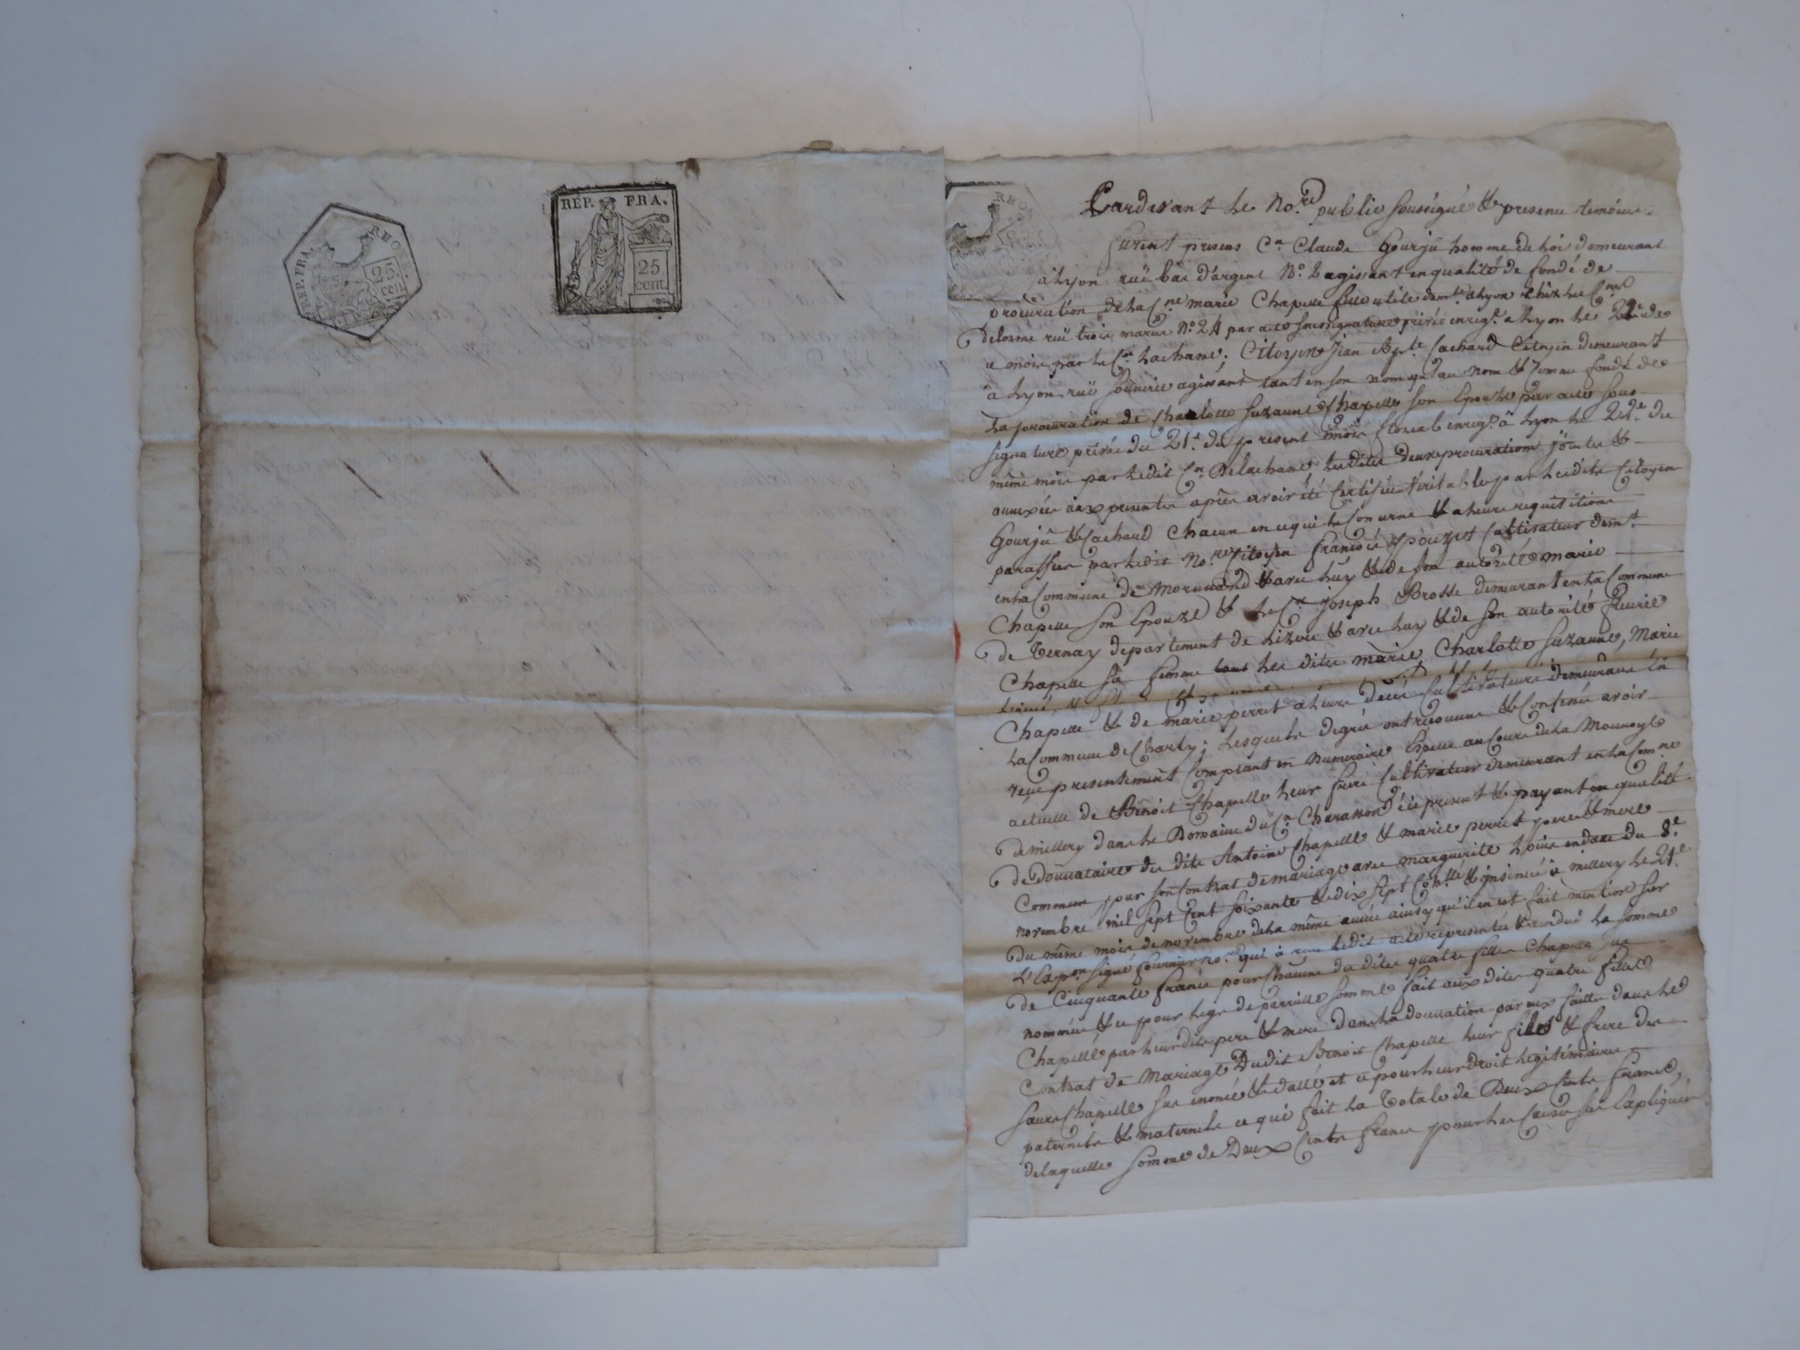 RÉP. FRA. RHO
25. cen.
RÉP. FRA.
25 cent.
RHO
Pardevant le No.re public soussigné & presens temoins
furent presens C.n Claude Gourju homme de loi demeurant
a Lyon ruë bas d'argent N.o agissant en qualité de fondé de
procuration de la C.ne marie Chapelle fille a Lyon chez les C.ns
Delorme ruë trois maries N.o 24 par acte sous signature privée enreg.é a Lyon le 22.e de
ce mois par le C.n Lachane; Citoyen Jean Cachard Citoyen demeurant
à Lyon ruë agissant tant en son nom qu'au nom & comme fondé de
la procuration de Charlotte Suzanne Chapelle son Epouze par acte sous
signature privée du 21.e du present mois floreal enreg.é à Lyon le 22.e du
même mois par ledit C.n Delachane lesdites deux procurations jointes &
annexées aux presentes après avoir été Certifiées Veritables par lesdits Citoyens
Gourju & Cachard Chacun en ce qui le Concerne & a leurs requisitions
paraffées par ledit No.re Citoyen François pouzet Cultivateur dem.t
en la Commune de Mornand & avec luy & de son autorité marie
Chapelle son Epouze & le C.n Joseph Brosse demeurant en la Commune
de Ternay departement de Lizere & avec luy & de son autorité fleurie
Chapelle sa femme tous les dites marie Charlotte Suzanne, Marie
Chapelle & de marie perret a leurs decès Cultivateurs demeurans en
la Commune de Charly; lesquels de gré ont reconnu & Confessé avoir
reçu presentement Comptant en Numeraire Espece au Cours de la Monnoye
actuelle de Benoit Chapelle leur frere Cultivateur demeurant en la Com.ne
de millery dans le Domaine du C.n Charasson ici present & payant en qualité
de Donnataire des dits Antoine Chapelle & marie perret pere & mere
Commun par son Contrat de mariage avec marguerite en date du 8.e
novembre mil sept Cent soixante & dix sept & insinué à millery le 21.e
du même mois de novembre de la même année ainsy qu'il en est fait mention sur
l'Exp.on signé fournier No.re qui à ledit acte representée & rendue la somme
de Cinquante francs pour chacune des dites quatre filles Chapelle sus
nommées & ce pour legs de pareille somme fait aux dites quatre filles
Chapelle par leur dits pere & mere dans la donnation par eux faitte dans le
Contrat de Mariage Dudit Benoit Chapelle leur fils & frere des
Chapelle sus enoncé & datté et ce pour leur droit legitimaire
paternels & maternels ce qui fait la Totale de Deux Cents francs,
de laquelle somme de Deux Cents francs pour les Causes sus Expliquées